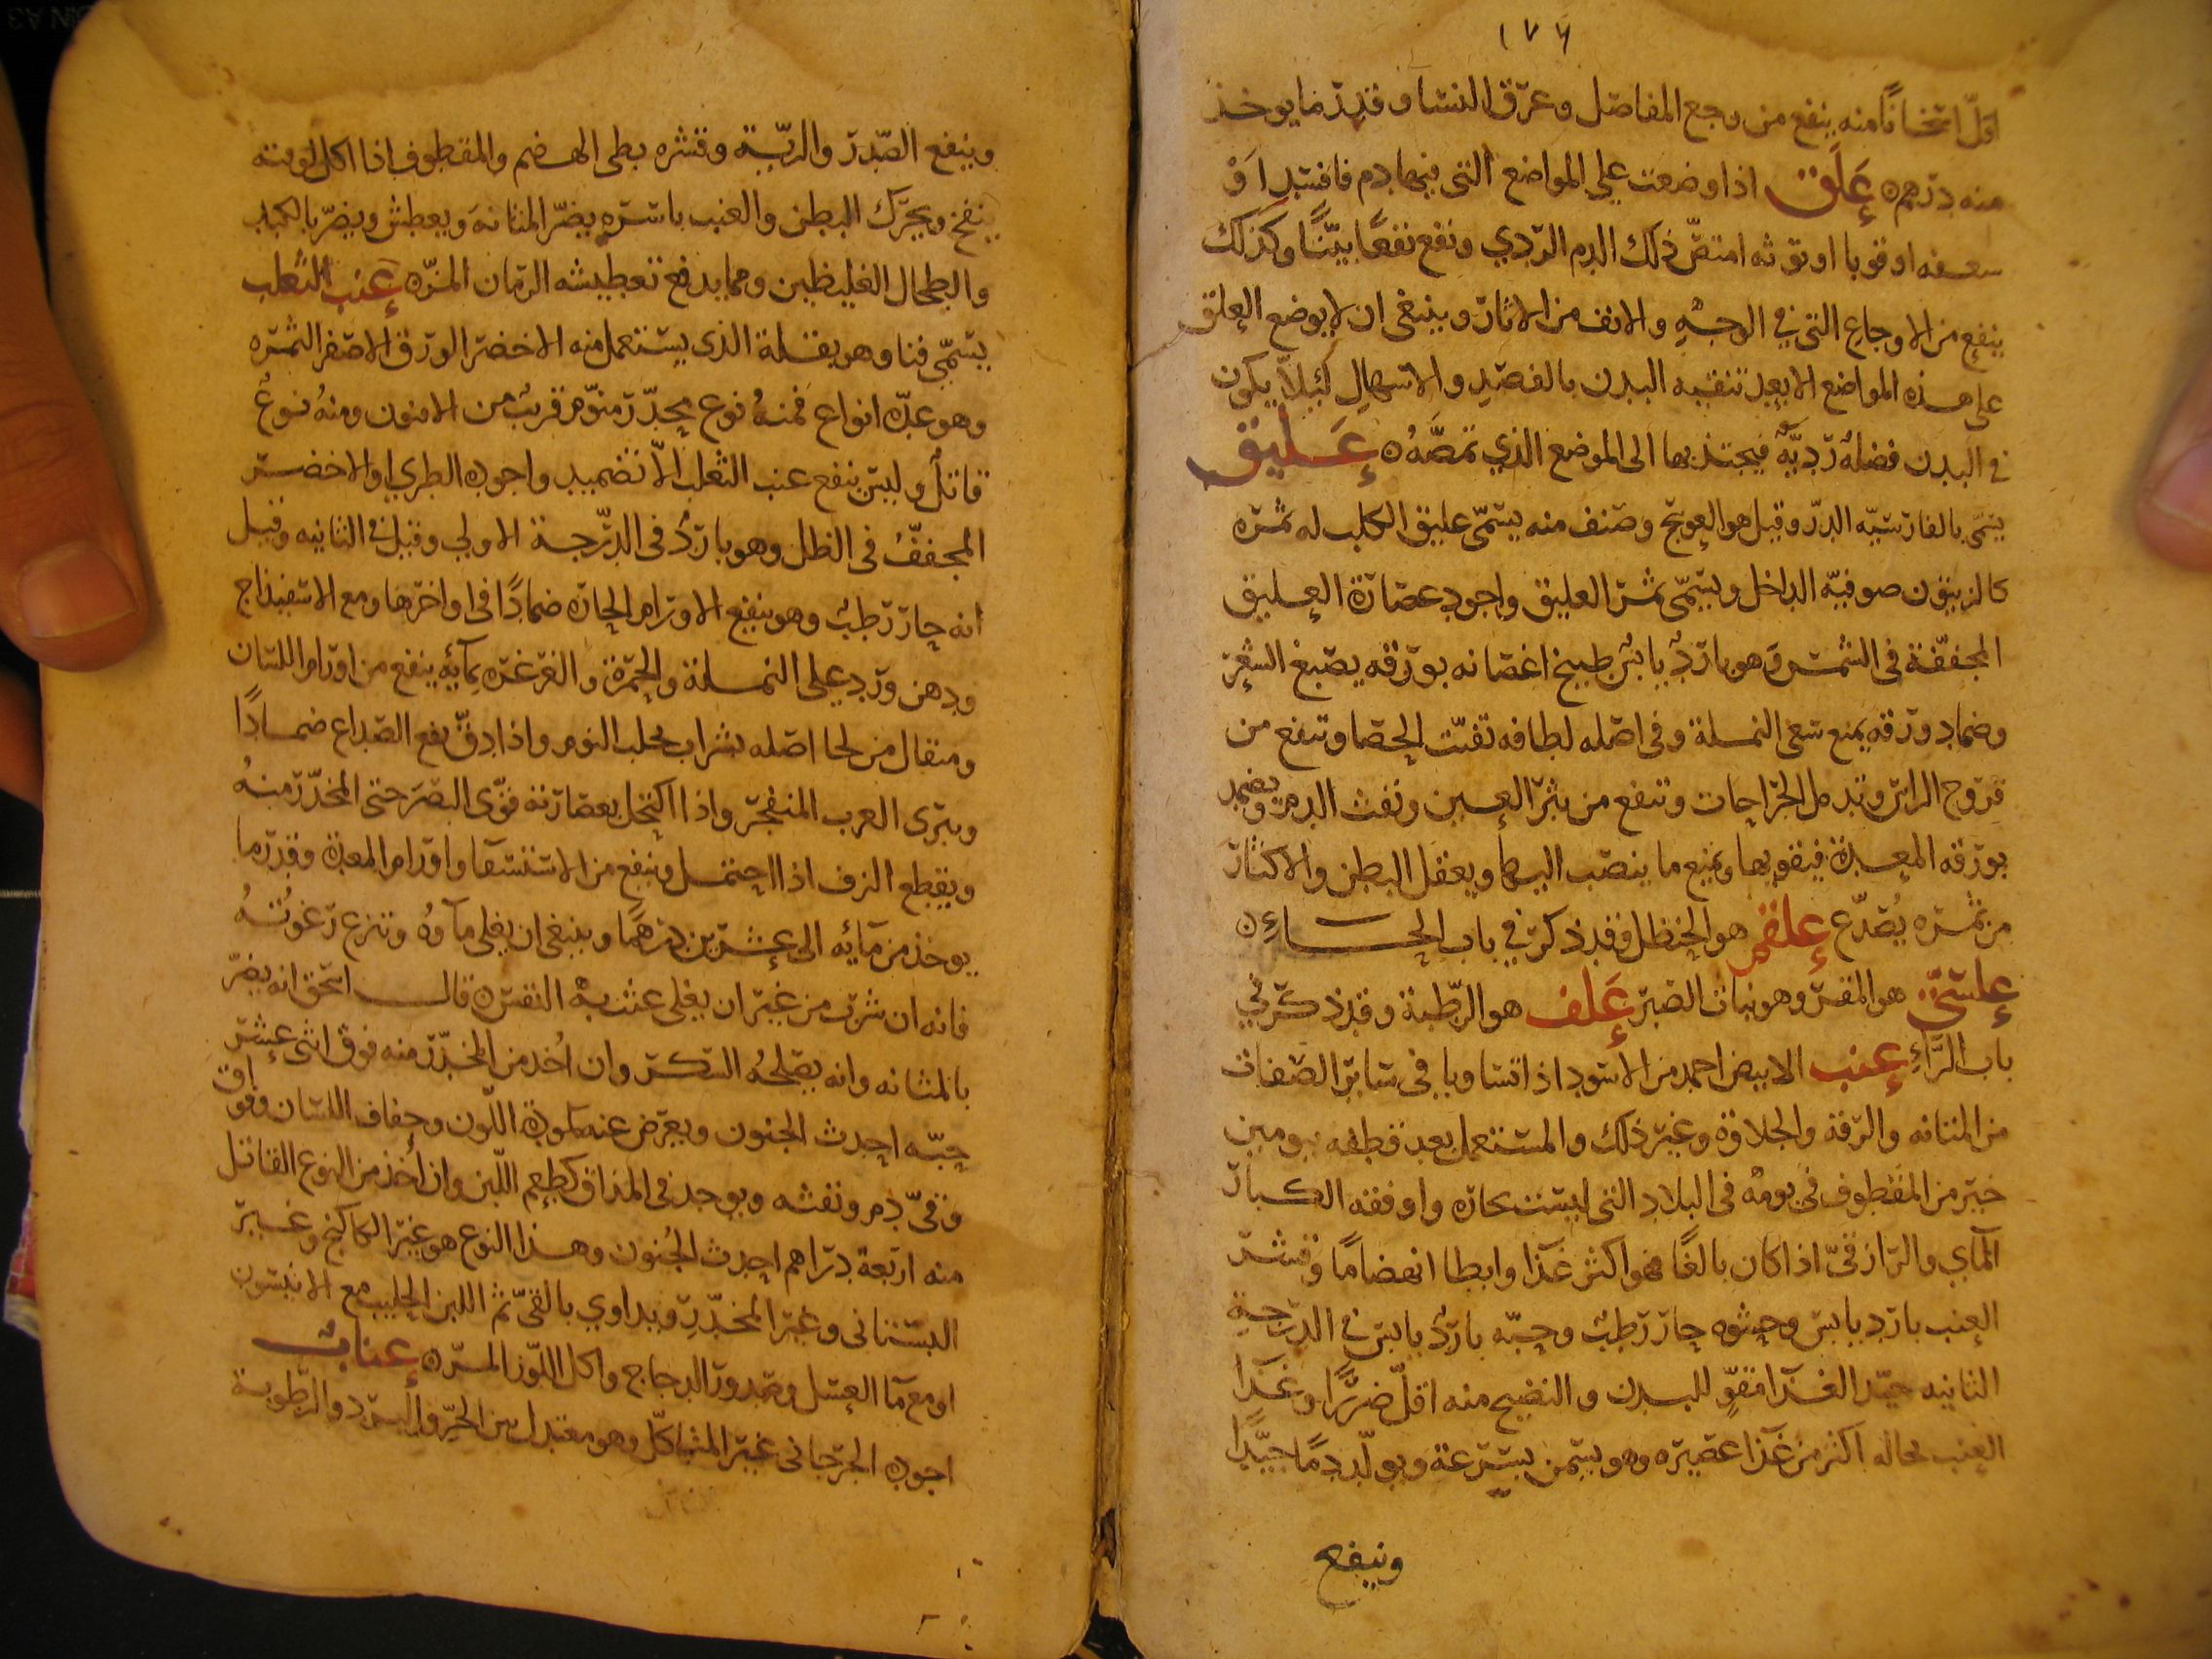 ١٧٦
اقل اسخانا منه ينفع من وجع المفاصل وعرق النسا وقدر ما يوخذ
منه درهم ه عَلَق اذا وضعت علي المواضع التي فيها دم فاسد اَوْ
سعفه او قوبا او توثه امتصّ ذلك الدم الردي ونفع نفعًا بيّنًا وكذلك
ينفع من الاوجاع التي في الوجهِ والانف من الاثار وينبغي ان لا يوضع العلق
على هذه المواضع الا بعد تنقيه البدن بالفصدِ والاسهالِ لئلّا يكون
في البدن فضلهٌ رَديَّهٌ فيجتذبها الى الموضع الذي تمصُّهُ ه عَليق
يسمّى بالفارسيّه الدرر وقيل هو العوسج وصنف منه يسمّى عليق الكلب له ثمره
كالزيتون صوفيّه الداخل ويسمّى ثمر العليق واجود عصارة العليق
المجففّة فى الشمس وَهو باردٌ يابسٌ طبيخ اغصانه بورقه يصبغ الشعر
وضماد ورقه يمنع سعى النملة وفى اصله لطافه تفتّت الحصا وتنفع من
قروح الراس وتدمل الجراحات وتنفع من بثر العين ونفث الدم ويضمد
بورقه المعدة فيقويها ويمنع ما ينصّب اليها ويعقل البطن والاكثار
من ثمره يُصدّع علقم هو الحنظل وقد ذكر في باب الحــاءِ ه
علسّى هو المقر وهو نبات الصبر عَلف هو الرطبة وقد ذكر في
باب الرَّاءِ عنب الابيض احمد من الاسود اذا تساويا فى سائر الصفات
من المتانه والرّقة والحلاوة وغير ذلك والمستعمل بعد قطفه بيومين
خير من المقطوف فى يومهُ فى البلاد التى ليست بحاره واوفقه الكبار
المآي والرازقىّ اذا كان بالغًا فهو اكثر غذا وابطا انهضامًا وقشر
العنب بارد يابس وحشوه حار رطبٌ وحبّه باردٌ يابس في الدرجةِ
الثانيه جيّد الغذآ مقوٍّ للبدن والنضيج منه اقلّ ضررًا وغذا
العنب بحاله اكثر من غذا عصيره وهو يسمن بسرعة ويولّد دمًا جيّدًا
وينفع
وينفع الصّدر والريّة وقشره بطى الهضم والمقطوف اذا اكل لوقته
ينفخ ويحرّك البطن والعنب باسره يضرّ المثانهَ ويعطش ويضرّ بالكبد
والطحال الغليظين ومما يدفع تعطيشه الرمان المزّه عنب الثعلب
يسمّى فنا وهو بقلة الذى يستعمل منه الاخضر الورق الاصفر الثمره
وهو عدّه انواع فمنهُ نوع مخدّر منوّم قريبٌ من الافيون ومنهُ نوعٌ
قاتلٌ وليس ينفع عنب الثعلب الّا تضميد واجوده الطري او الاخضر
المجففّ فى الظل وهو باردٌ فى الدرّجة الاولي وقيل في الثانيه وقيل
انه حار رطبٌ وهو ينفع الاورام الحاره ضمادًا فى اواخرها ومع الاسفيذاج
ودهن ورد علي النملة والحمرة والغرغره بمآيه ينفع من اورام اللسان
ومثقال من لحا اصله بشراب يجلب النوم واذا دقّ نفع الصداع ضمــادًا
ويبرى الغرب المنفجر واذا اكتحل بعصارته قوّى البصر حتى المخدّر منهُ
ويقطع النزف اذا احتمل وينفع من الاستسقا واورام المعدة وقدر ما
يوخذ من مآيه الى عشرين درهمًا وينبغى ان يغلى مآوهُ وتنزع رَغوتُهُ
فانه ان شرب من غير ان يغلى عثت به النفس ه قالــ اسحق انه يضرّ
بالمثانه وانه يصلحُه السكر وان اُخذ من المخدّر منه فوق اثنى عشر
حبّه احدث الجنون ويعرض عنه كمودة اللّون وجفاف اللسان وفواق
وقىّ دم ونفثه ويوجد فى المذاق كطعم اللّبن وان اُخذ من النوع القاتل
منه اربعة دراهم احدث الجُنون وهذا النوع هو غير الكاكنج وغيــر
البستانى وغير المخدّرِ ويداوي بالقىّ ثم اللبن الحليب مع الانيسون
او مع مآ العسل وصدور الدجاج واكل اللّوز المر ه عنابــ
اجوده الجرجانى غير المتاكلّ وهو معتدل بين الحرّ والبرد والرطوبة